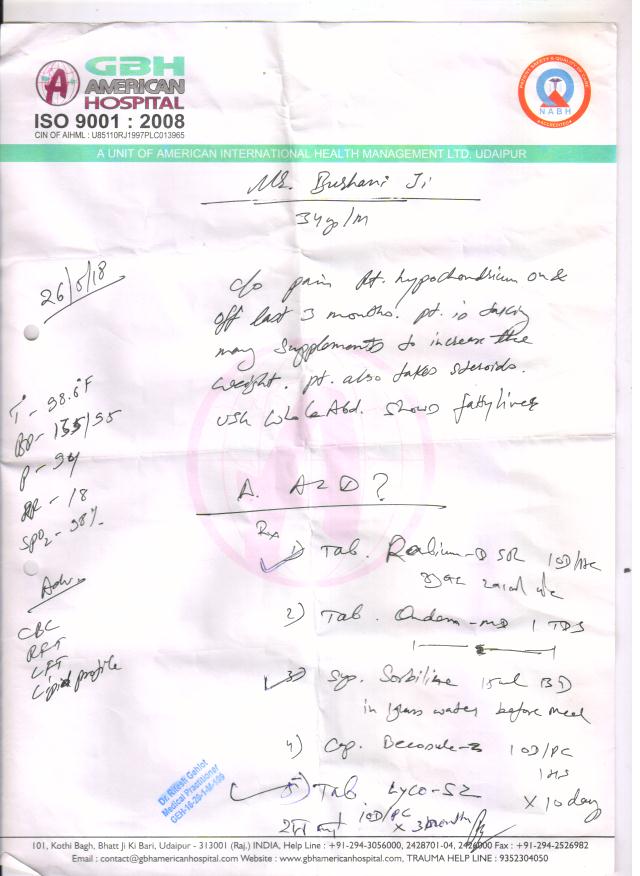 GBH
AMERICAN
HOSPITAL
ISO 9001 : 2008
CIN OF AIHML : U85110RJ1997PLC013965
PATIENT SAFETY & QUALITY OF CARE
NABH
ACCREDITED
A UNIT OF AMERICAN INTERNATIONAL HEALTH MANAGEMENT LTD. UDAIPUR
Ji
34yo/M
26/5/18
c/o pain Rt. hypochondrium on &
off last 3 months. pt. is taking
many supplements to increase the
weight. pt. also takes steroids.
USG Whole Abd. shows fatty liver
T - 98.6°F
BP - 135/95
P - 94
RR - 18
SPO2 - 98%
A. ALD?
Rx
1) Tab. Rabium-D SR 1OD/AC
2) Tab. Ondem-MD 1 TDS
3) Syp. Sorbiline 15ml BD
in 1 glass water before meal
4) Cap. Becosule-Z 1OD/PC
1 HS
5) Tab. Lyco-SZ x 10 day
1OD/PC x 3 month
Adv
CBC
RFT
LFT
Lipid profile
Dr. Ritesh Gehlot
Medical Practitioner
GEH-16-20-1-M-109
101, Kothi Bagh, Bhatt Ji Ki Bari, Udaipur - 313001 (Raj.) INDIA, Help Line : +91-294-3056000, 2428701-04, 2426000 Fax : +91-294-2526982
Email : contact@gbhamericanhospital.com Website : www.gbhamericanhospital.com, TRAUMA HELP LINE : 9352304050